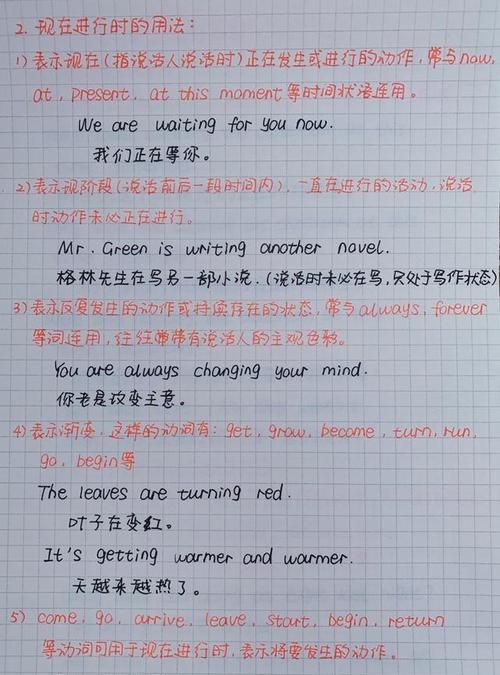 2. 现在进行时的用法：
1) 表示现在(指说话人说话时)正在发生或进行的动作，常与now,
at, present, at this moment等时间状语连用。
We are waiting for you now.
我们正在等你。
2) 表示现阶段(说话前后一段时间内)，一直在进行的活动，说话
时动作未必正在进行。
Mr. Green is writing another novel.
格林先生在写另一部小说. (说话时未必在写，只处于写作状态)
3) 表示反复发生的动作或持续存在的状态，常与always, forever
等词连用，往往带有说话人的主观色彩。
You are always changing your mind.
你老是改变主意。
4) 表示渐变，这样的动词有：get, grow, become, turn, run,
go, begin等
The leaves are turning red.
叶子在变红。
It's getting warmer and warmer.
天越来越热了。
5) come, go, arrive, leave, start, begin, return
等动词可用于现在进行时，表示将要发生的动作。